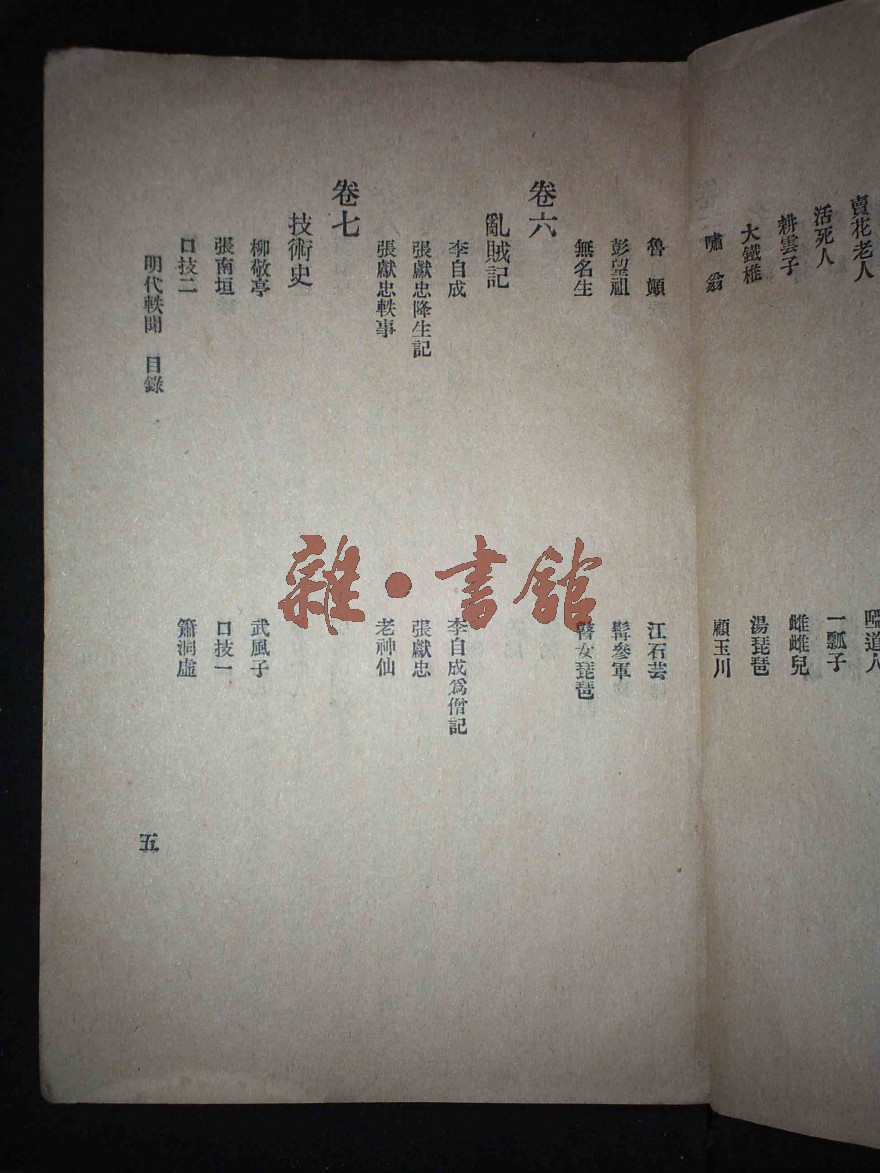 賣花老人　啞道人
活死人　一瓢子
耕雲子　雌雌兒
大鐵椎　湯琵琶
嘯翁　顧玉川
魯顛　江石芸
彭望祖　髯參軍
無名生　瞽女琵琶
卷六
亂賊記
李自成　李自成爲僧記
張獻忠降生記　張獻忠
張獻忠軼事　老神仙
卷七
技術史
柳敬亭　武風子
張南垣　口技一
口技二　簫洞虛
明代軼聞　目錄　五
雜·書館